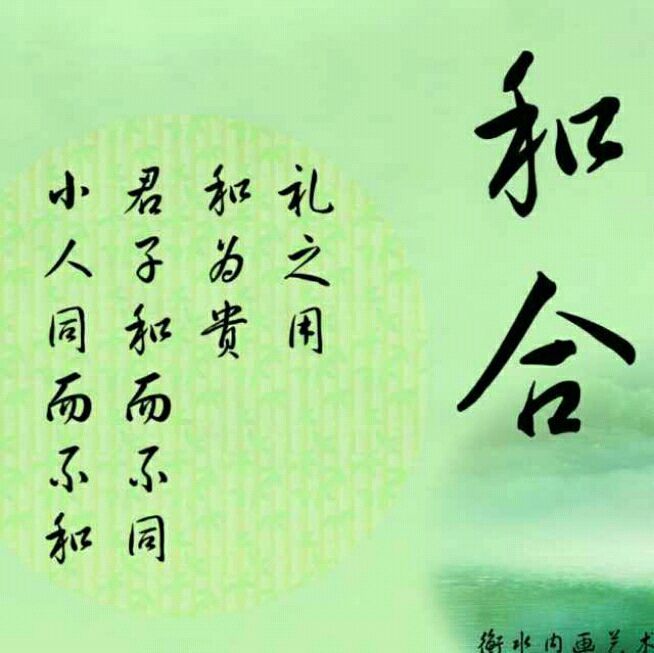 和合
礼之用
和为贵
君子和而不同
小人同而不和
衡水内画艺术